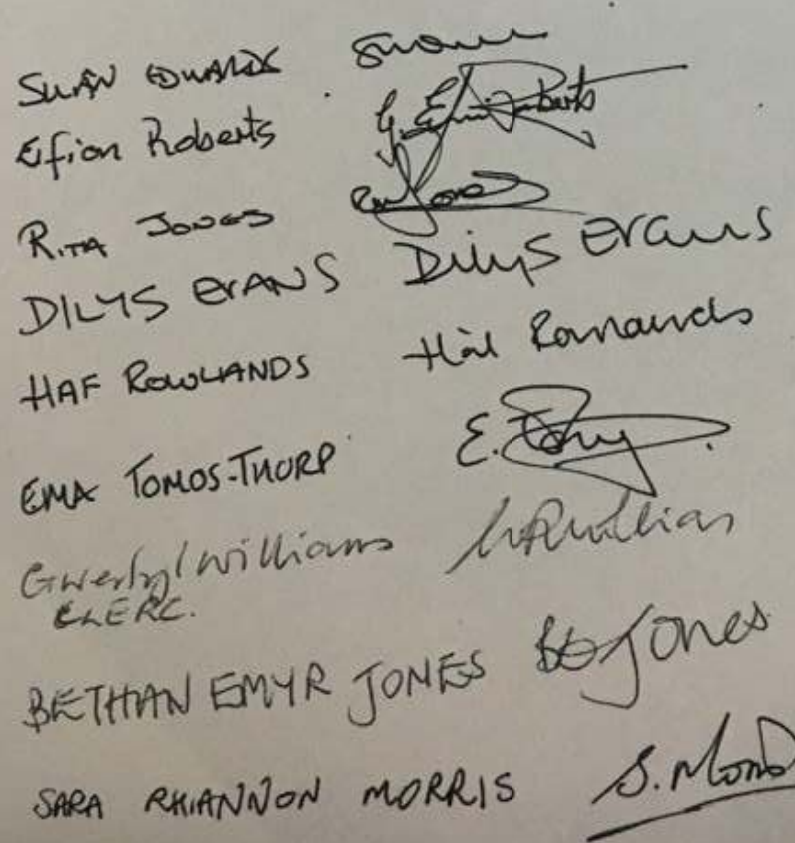 SIWAN EDWARDS
Eifion Roberts G. Eifion Roberts
RITA JONES RM Jones
DILYS EVANS Dilys Evans
HAF ROWLANDS Haf Rowlands
EMA TOMOS-THORP E.
Gwerfyl Williams Williams
CLERC.
BETHAN EMYR JONES BE Jones
SARA RHIANNON MORRIS S. Morris